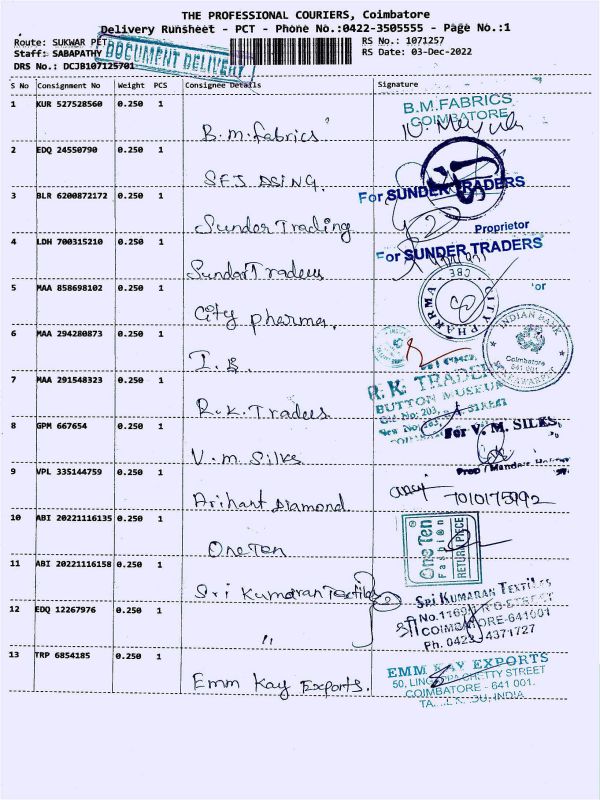 THE PROFESSIONAL COURIERS, Coimbatore
Delivery Runsheet - PCT - Phone No.:0422-3505555 - Page No.:1
Route: SUKWAR PET
RS No.: 1071257
Staff: SABAPATHY
RS Date: 03-Dec-2022
DOCUMENT DELIVERY
DRS No.: DCJB107125701
S No Consignment No Weight PCS Consignee Details Signature
1 KUR 527528560 0.250 1
B.M.fabrics
B.M.FABRICS
COIMBATORE
2 EDQ 24550790 0.250 1
3 BLR 6200872172 0.250 1
Sunder Trading
For SUNDER TRADERS
2
Proprietor
4 LDH 700315210 0.250 1
Sundar Traders
For SUNDER TRADERS
5 MAA 858698102 0.250 1
City pharma.
CITY PHARMA
CBE
or
6 MAA 294280873 0.250 1
I.B.
INDIAN BANK
Coimbatore
641 001
7 MAA 291548323 0.250 1
R.K. Traders
R.K. TRADERS
BUTTON MUSEUM
Old No: 203,
STREET
8 GPM 667654 0.250 1
V.M. Silks
For V. M. SILKS,
9 VPL 335144759 0.250 1
Arihant Diamond
7010175992
10 ABI 20221116135 0.250 1
One Ten
One Ten
Fashion
RETURN PIECE
11 ABI 20221116158 0.250 1
Sri Kumaran Textiles
2
SRI KUMARAN TEXTILES
COIMBATORE-641001
Ph. 0423-4371727
12 EDQ 12267976 0.250 1
"
13 TRP 6854185 0.250 1
Emm Kay Exports.
EMM KAY EXPORTS
COIMBATORE - 641 001.
INDIA